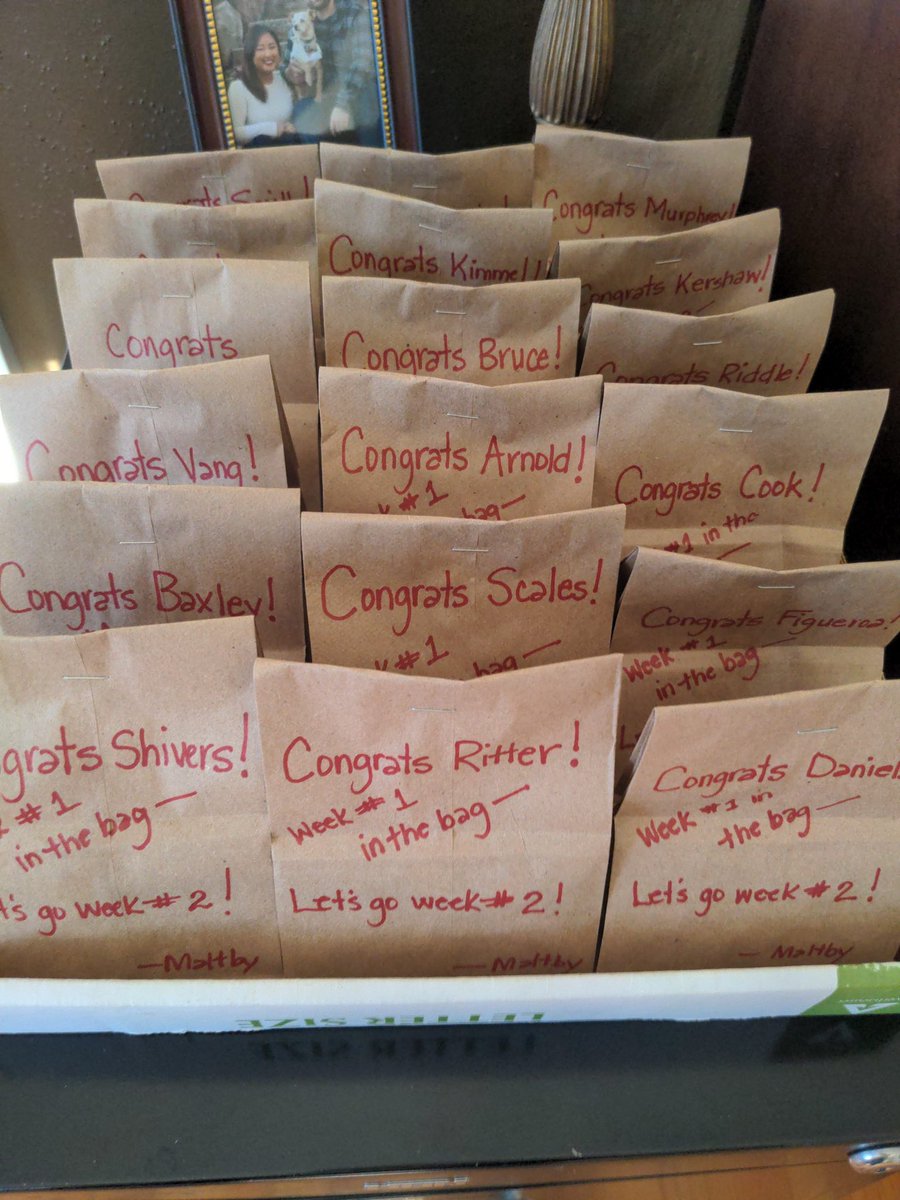 Congrats
Congrats Murphrey!
Congrats Kimmel!
Congrats Kershaw!
Congrats
Congrats Bruce!
Congrats Riddle!
Congrats Vang!
Congrats Arnold!
# 1
bag —
Congrats Cook!
#1 in the
Congrats Baxley!
Congrats Scales!
# 1
bag —
Congrats Figueroa!
Week # 1
in the bag —
Shivers!
# 1
in the bag —
go week # 2!
— Maltby
Congrats Ritter!
Week # 1
in the bag —
Let's go week # 2!
— Maltby
Congrats Daniel
Week # 1 in
the bag —
Let's go week # 2!
— Maltby
LETTER SIZE